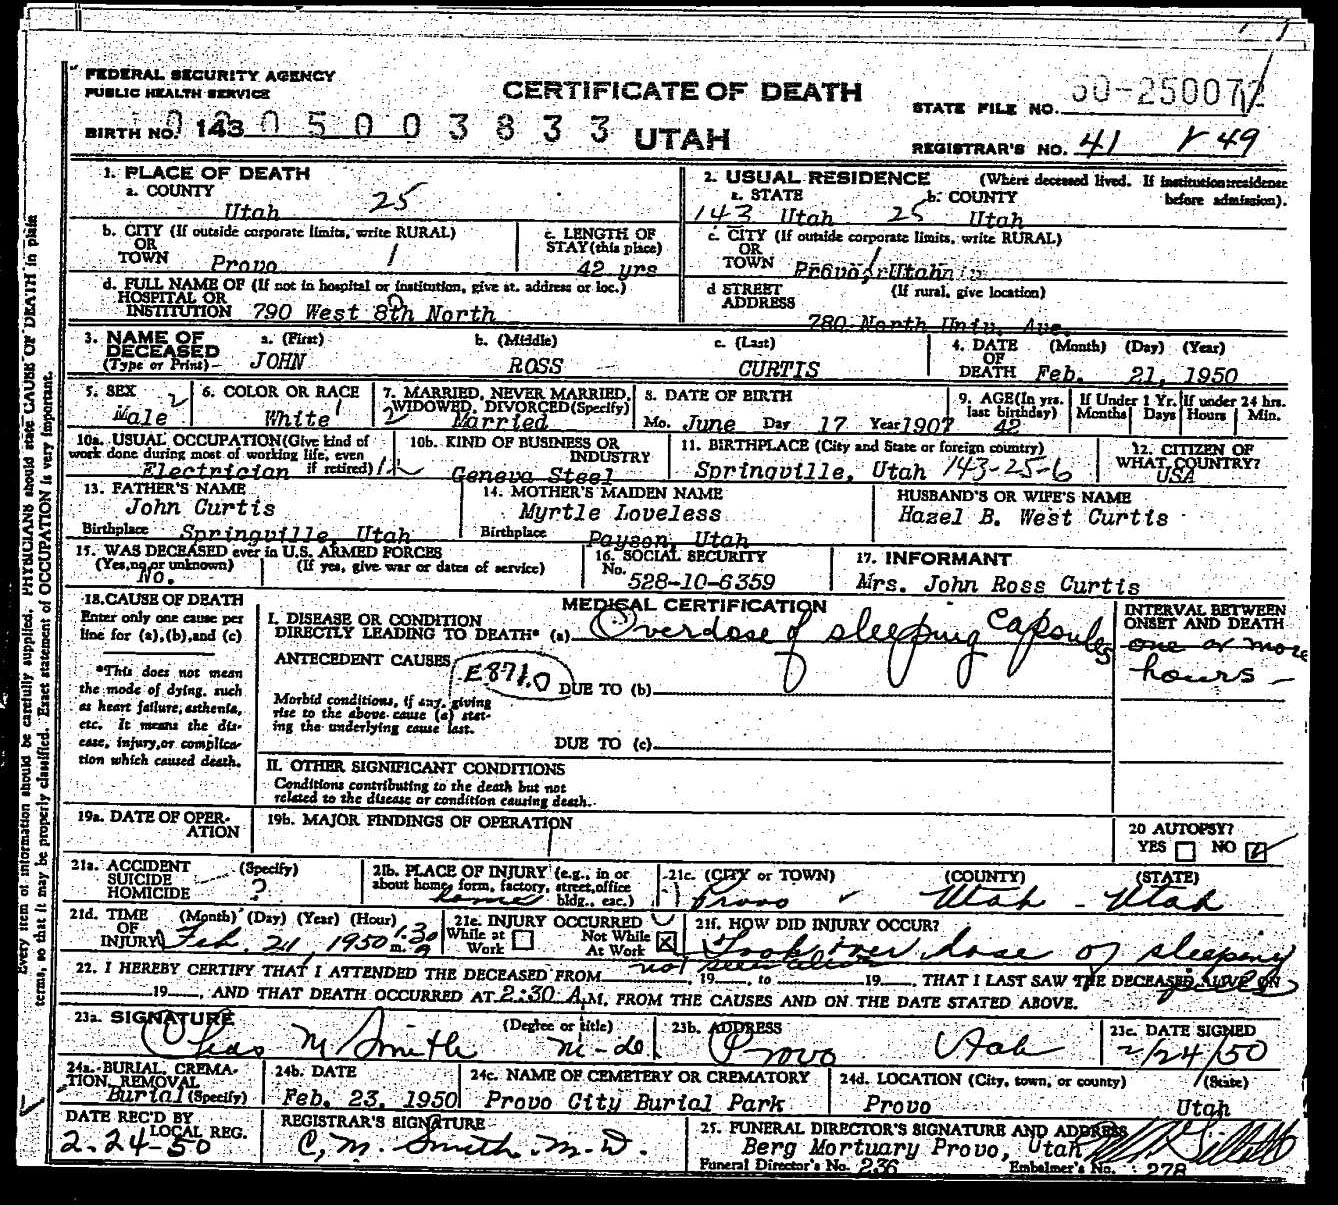 FEDERAL SECURITY AGENCY
PUBLIC HEALTH SERVICE
CERTIFICATE OF DEATH
STATE FILE NO. 50-250072
BIRTH NO. 143
0 2 0 5 0 0 3 8 3 3
UTAH
REGISTRAR'S NO. 41 49
1. PLACE OF DEATH
a. COUNTY
Utah 25
2. USUAL RESIDENCE (Where deceased lived. If institution: residence before admission).
a. STATE b. COUNTY
143 Utah 25 Utah
b. CITY (If outside corporate limits, write RURAL)
OR
TOWN Provo 1
c. LENGTH OF
STAY (this place)
42 yrs
c. CITY (If outside corporate limits, write RURAL)
OR
TOWN Provo, Utah
d. FULL NAME OF (If not in hospital or institution, give st. address or loc.)
HOSPITAL OR
INSTITUTION 790 West 8th North
d STREET (If rural, give location)
ADDRESS
780 North Univ. Ave.
3. NAME OF DECEASED
(Type or Print)
a. (First) b. (Middle) c. (Last)
JOHN ROSS CURTIS
4. DATE OF DEATH (Month) (Day) (Year)
Feb. 21, 1950
5. SEX
Male 2
6. COLOR OR RACE
White 1
7. MARRIED, NEVER MARRIED,
WIDOWED, DIVORCED (Specify)
2 Married
8. DATE OF BIRTH
Mo. June Day 17 Year 1907
9. AGE (In yrs. last birthday)
42
If Under 1 Yr. Months Days
If under 24 hrs. Hours Min.
10a. USUAL OCCUPATION (Give kind of
work done during most of working life, even
if retired)
Electrician
10b. KIND OF BUSINESS OR
INDUSTRY
Geneva Steel
11. BIRTHPLACE (City and State or foreign country)
Springville, Utah 143-25-6
12. CITIZEN OF
WHAT COUNTRY?
USA
13. FATHER'S NAME
John Curtis
Birthplace Springville, Utah
14. MOTHER'S MAIDEN NAME
Myrtle Loveless
Birthplace Payson, Utah
HUSBAND'S OR WIFE'S NAME
Hazel B. West Curtis
15. WAS DECEASED ever in U.S. ARMED FORCES
(Yes, no, or unknown) (If yes, give war or dates of service)
No.
16. SOCIAL SECURITY
No.
528-10-6359
17. INFORMANT
Mrs. John Ross Curtis
18. CAUSE OF DEATH
Enter only one cause per
line for (a), (b), and (c)
*This does not mean
the mode of dying, such
as heart failure, asthenia,
etc. It means the dis-
ease, injury, or complica-
tion which caused death.
MEDICAL CERTIFICATION
I. DISEASE OR CONDITION
DIRECTLY LEADING TO DEATH* (a) Overdose of sleeping capsules
ANTECEDENT CAUSES E871.0
DUE TO (b)
Morbid conditions, if any, giving
rise to the above cause (a) stat-
ing the underlying cause last.
DUE TO (c)
II. OTHER SIGNIFICANT CONDITIONS
Conditions contributing to the death but not
related to the disease or condition causing death.
INTERVAL BETWEEN
ONSET AND DEATH
one or more
hours
19a. DATE OF OPER-
ATION
19b. MAJOR FINDINGS OF OPERATION
20 AUTOPSY?
YES NO
21a. ACCIDENT (Specify)
SUICIDE
HOMICIDE ?
21b. PLACE OF INJURY (e.g., in or
about home, form, factory, street, office
bldg., eac.)
home
21c. (CITY or TOWN) (COUNTY) (STATE)
Provo Utah - Utah
21d. TIME (Month) (Day) (Year) (Hour)
OF
INJURY Feb. 21, 1950 1:30 m.
21e. INJURY OCCURRED
While at Work Not While At Work X
21f. HOW DID INJURY OCCUR?
Took over dose of sleeping
pills
22. I HEREBY CERTIFY THAT I ATTENDED THE DECEASED FROM not seen alive, 19, to 19, THAT I LAST SAW THE DECEASED ALIVE ON
19, AND THAT DEATH OCCURRED AT 2:30 A.M. FROM THE CAUSES AND ON THE DATE STATED ABOVE.
23a. SIGNATURE (Degree or title)
Chas M Smith
23b. ADDRESS
Provo Utah
23c. DATE SIGNED
2/24/50
24a. BURIAL, CREMA-
TION, REMOVAL
Burial (Specify)
24b. DATE
Feb. 23, 1950
24c. NAME OF CEMETERY OR CREMATORY
Provo City Burial Park
24d. LOCATION (City, town, or county) (State)
Provo Utah
DATE REC'D BY
LOCAL REG.
2-24-50
REGISTRAR'S SIGNATURE
C. M. Smith. M. D.
25. FUNERAL DIRECTOR'S SIGNATURE AND ADDRESS
Berg Mortuary Provo, Utah
Funeral Director's No. 236 Embalmer's No. 278
Every item of information should be carefully supplied. PHYSICIANS should state CAUSE OF DEATH in plain
terms, so that it may be properly classified. Exact statement of OCCUPATION is very important.